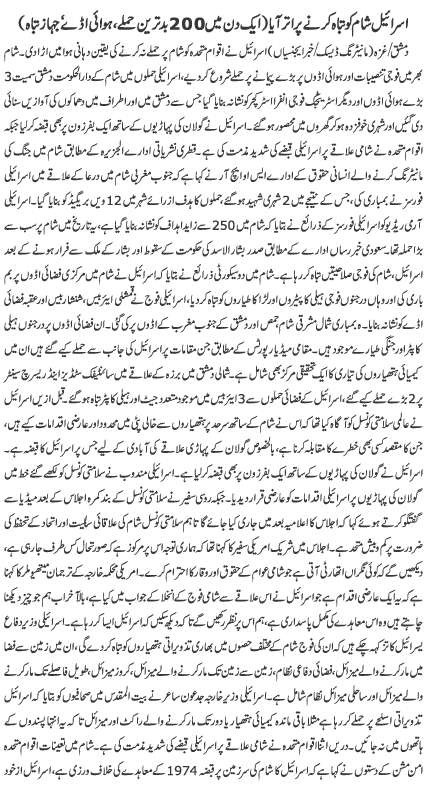 اسرائیل شام کو تباہ کرنے پر اتر آیا (ایک دن میں 200 بدترین حملے، ہوائی اڈے جہاز تباہ)
دمشق/غزہ (مانیٹرنگ ڈیسک/خبر ایجنسیاں) اسرائیل نے اقوام متحدہ کو شام پر حملے نہ کرنے کی یقین دہانی ہوا میں اڑا دی۔ شام
بھر میں فوجی تنصیبات اور ہوائی اڈوں پر بڑے پیمانے پر حملے شروع کر دیے، اسرائیلی حملوں میں شام کے دارالحکومت دمشق سمیت 3
بڑے ہوائی اڈوں اور دیگر اسٹریٹجک فوجی انفرا اسٹرکچر کو نشانہ بنایا گیا جس سے دمشق اور اطراف میں دھماکوں کی آوازیں سنائی
دی گئیں اور شہری خوفزدہ ہو کر گھروں میں محصور ہو گئے۔ اسرائیل نے گولان کی پہاڑیوں کے ساتھ ایک بفر زون پر بھی قبضہ کر لیا جبکہ
اقوام متحدہ نے شامی علاقے پر اسرائیلی قبضے کی شدید مذمت کی ہے۔ قطری نشریاتی ادارے الجزیرہ کے مطابق شام میں جنگ کی
مانیٹرنگ کرنے والے انسانی حقوق کے ادارے ایس او ایچ آر نے کہا ہے کہ جنوب مغربی شام میں درعا کے علاقے میں اسرائیلی
فورسز نے بمباری کی، جس کے نتیجے میں 2 شہری شہید ہو گئے، حملوں کا ہدف ازرائے شہر میں 12 ویں بریگیڈ کو بنایا گیا۔ اسرائیلی
آرمی ریڈیو کو اسرائیلی فورسز کے ذرائع نے بتایا کہ شام میں 250 سے زاید اہداف کو نشانہ بنایا گیا ہے، یہ تاریخ میں شام پر سب سے
بڑا حملہ تھا۔ سعودی خبر رساں ادارے کے مطابق صدر بشار الاسد کی حکومت کے سقوط اور بشار کے ملک سے فرار ہونے کے بعد
اسرائیل، شام کی فوجی صلاحیتیں تباہ کر رہا ہے۔ شام میں دو سیکورٹی ذرائع نے بتایا کہ اسرائیل نے شام میں مرکزی فضائی اڈوں پر بم
باری کی اور وہاں درجنوں فوجی ہیلی کاپٹروں اور لڑاکا طیاروں کو تباہ کر دیا، اسرائیلی فوج نے قمشلی ایئر بیس، شنشار بیس اور عقبہ فضائی
اڈے کو نشانہ بنایا۔ یہ بمباری شمال مشرقی شام، حمص اور دمشق کے جنوب مغرب کے اڈوں پر کی گئی۔ ان فضائی اڈوں پر درجنوں ہیلی
کاپٹر اور جنگی طیارے موجود ہیں۔ مقامی میڈیا رپورٹس کے مطابق جن مقامات پر اسرائیل کی جانب سے حملے کیے گئے ہیں ان میں
کیمیائی ہتھیاروں کی تیاری کا ایک تحقیقی مرکز بھی شامل ہے۔ شمالی دمشق میں برزہ کے علاقے میں سائنٹیفک سٹڈیز اینڈ ریسرچ سینٹر
پر 2 بڑے حملے کیے گئے، اسرائیل کے فضائی حملوں سے 3 ایئر بیس میں موجود متعدد جیٹ اور ہیلی کاپٹر تباہ ہو گئے۔ قبل ازیں اسرائیل
نے عالمی سلامتی کونسل کو آگاہ کیا تھا کہ اس نے شام کے ساتھ سرحد پر ہتھیاروں سے خالی پٹی میں محدود اور عارضی اقدامات کیے ہیں،
جن کا مقصد کسی بھی خطرے کا مقابلہ کرنا ہے، بالخصوص گولان کے پہاڑی علاقے کی آبادی کے لیے جس پر اسرائیل کا قبضہ ہے۔
اسرائیل نے گولان کی پہاڑیوں کے ساتھ ایک بفر زون پر بھی قبضہ کر لیا ہے۔ اسرائیلی مندوب نے سلامتی کونسل کو لکھے گئے خط میں
گولان کی پہاڑیوں پر اسرائیلی اقدامات کو عارضی قرار دیدیا۔ جبکہ روسی سفیر نے سلامتی کونسل کے بند کمرہ اجلاس کے بعد میڈیا سے
گفتگو کرتے ہوئے کہا کہ اجلاس کا اعلامیہ بعد میں جاری کیا جائے گا تاہم سلامتی کونسل شام کی علاقائی سالمیت اور اتحاد کے تحفظ کی
ضرورت پر کم و بیش متحد ہے۔ اجلاس میں شریک امریکی سفیر کا کہنا تھا کہ ہماری توجہ اس پر مرکوز ہے کہ صورتحال کس طرف جا رہی ہے،
دیکھیں گے کہ کوئی نگراں اتھارٹی آتی ہے جو شامی عوام کے حقوق اور وقار کا احترام کرے۔ امریکی محکمہ خارجہ کے ترجمان میتھیو ملر کا کہنا
ہے کہ یہ ایک عارضی اقدام ہے جو اسرائیل نے اس علاقے سے شامی فوج کے انخلا کے جواب میں کیا ہے، بالآخر اب ہم جو چیز دیکھنا
چاہتے ہیں وہ اس معاہدے کی مکمل پاسداری ہے، ہم اس پر نظر رکھیں گے تاکہ دیکھ سکیں کہ اسرائیل ایسا کر رہا ہے۔ اسرائیلی وزیر دفاع
یسرائیل کاتز کہہ چکے ہیں کہ ان کی فوج شام کے مختلف حصوں میں بھاری تذویراتی ہتھیاروں کو تباہ کر دے گی، ان میں زمین سے فضا
میں مار کرنے والے میزائل، فضائی دفاعی نظام، زمین سے زمین تک مار کرنے والے میزائل، کروز میزائل، طویل فاصلے تک مار کرنے
والے میزائل اور ساحلی میزائل نظام شامل ہے۔ اسرائیلی وزیر خارجہ جدعون ساعر نے بیت المقدس میں صحافیوں کو بتایا کہ اسرائیل
تذویراتی اسلحے پر حملے کر رہا ہے مثلا باقی ماندہ کیمیائی ہتھیار یا دور تک مار کرنے والے راکٹ اور میزائل تاکہ یہ انتہا پسندوں کے
ہاتھوں میں نہ جائیں۔ دریں اثنا اقوام متحدہ نے شامی علاقے پر اسرائیلی قبضے کی شدید مذمت کی ہے۔ شام میں تعینات اقوام متحدہ
امن مشن کے دستوں نے کہا ہے کہ اسرائیل کا شام کی سرزمین پر قبضہ 1974 کے معاہدے کی خلاف ورزی ہے، اسرائیل از خود